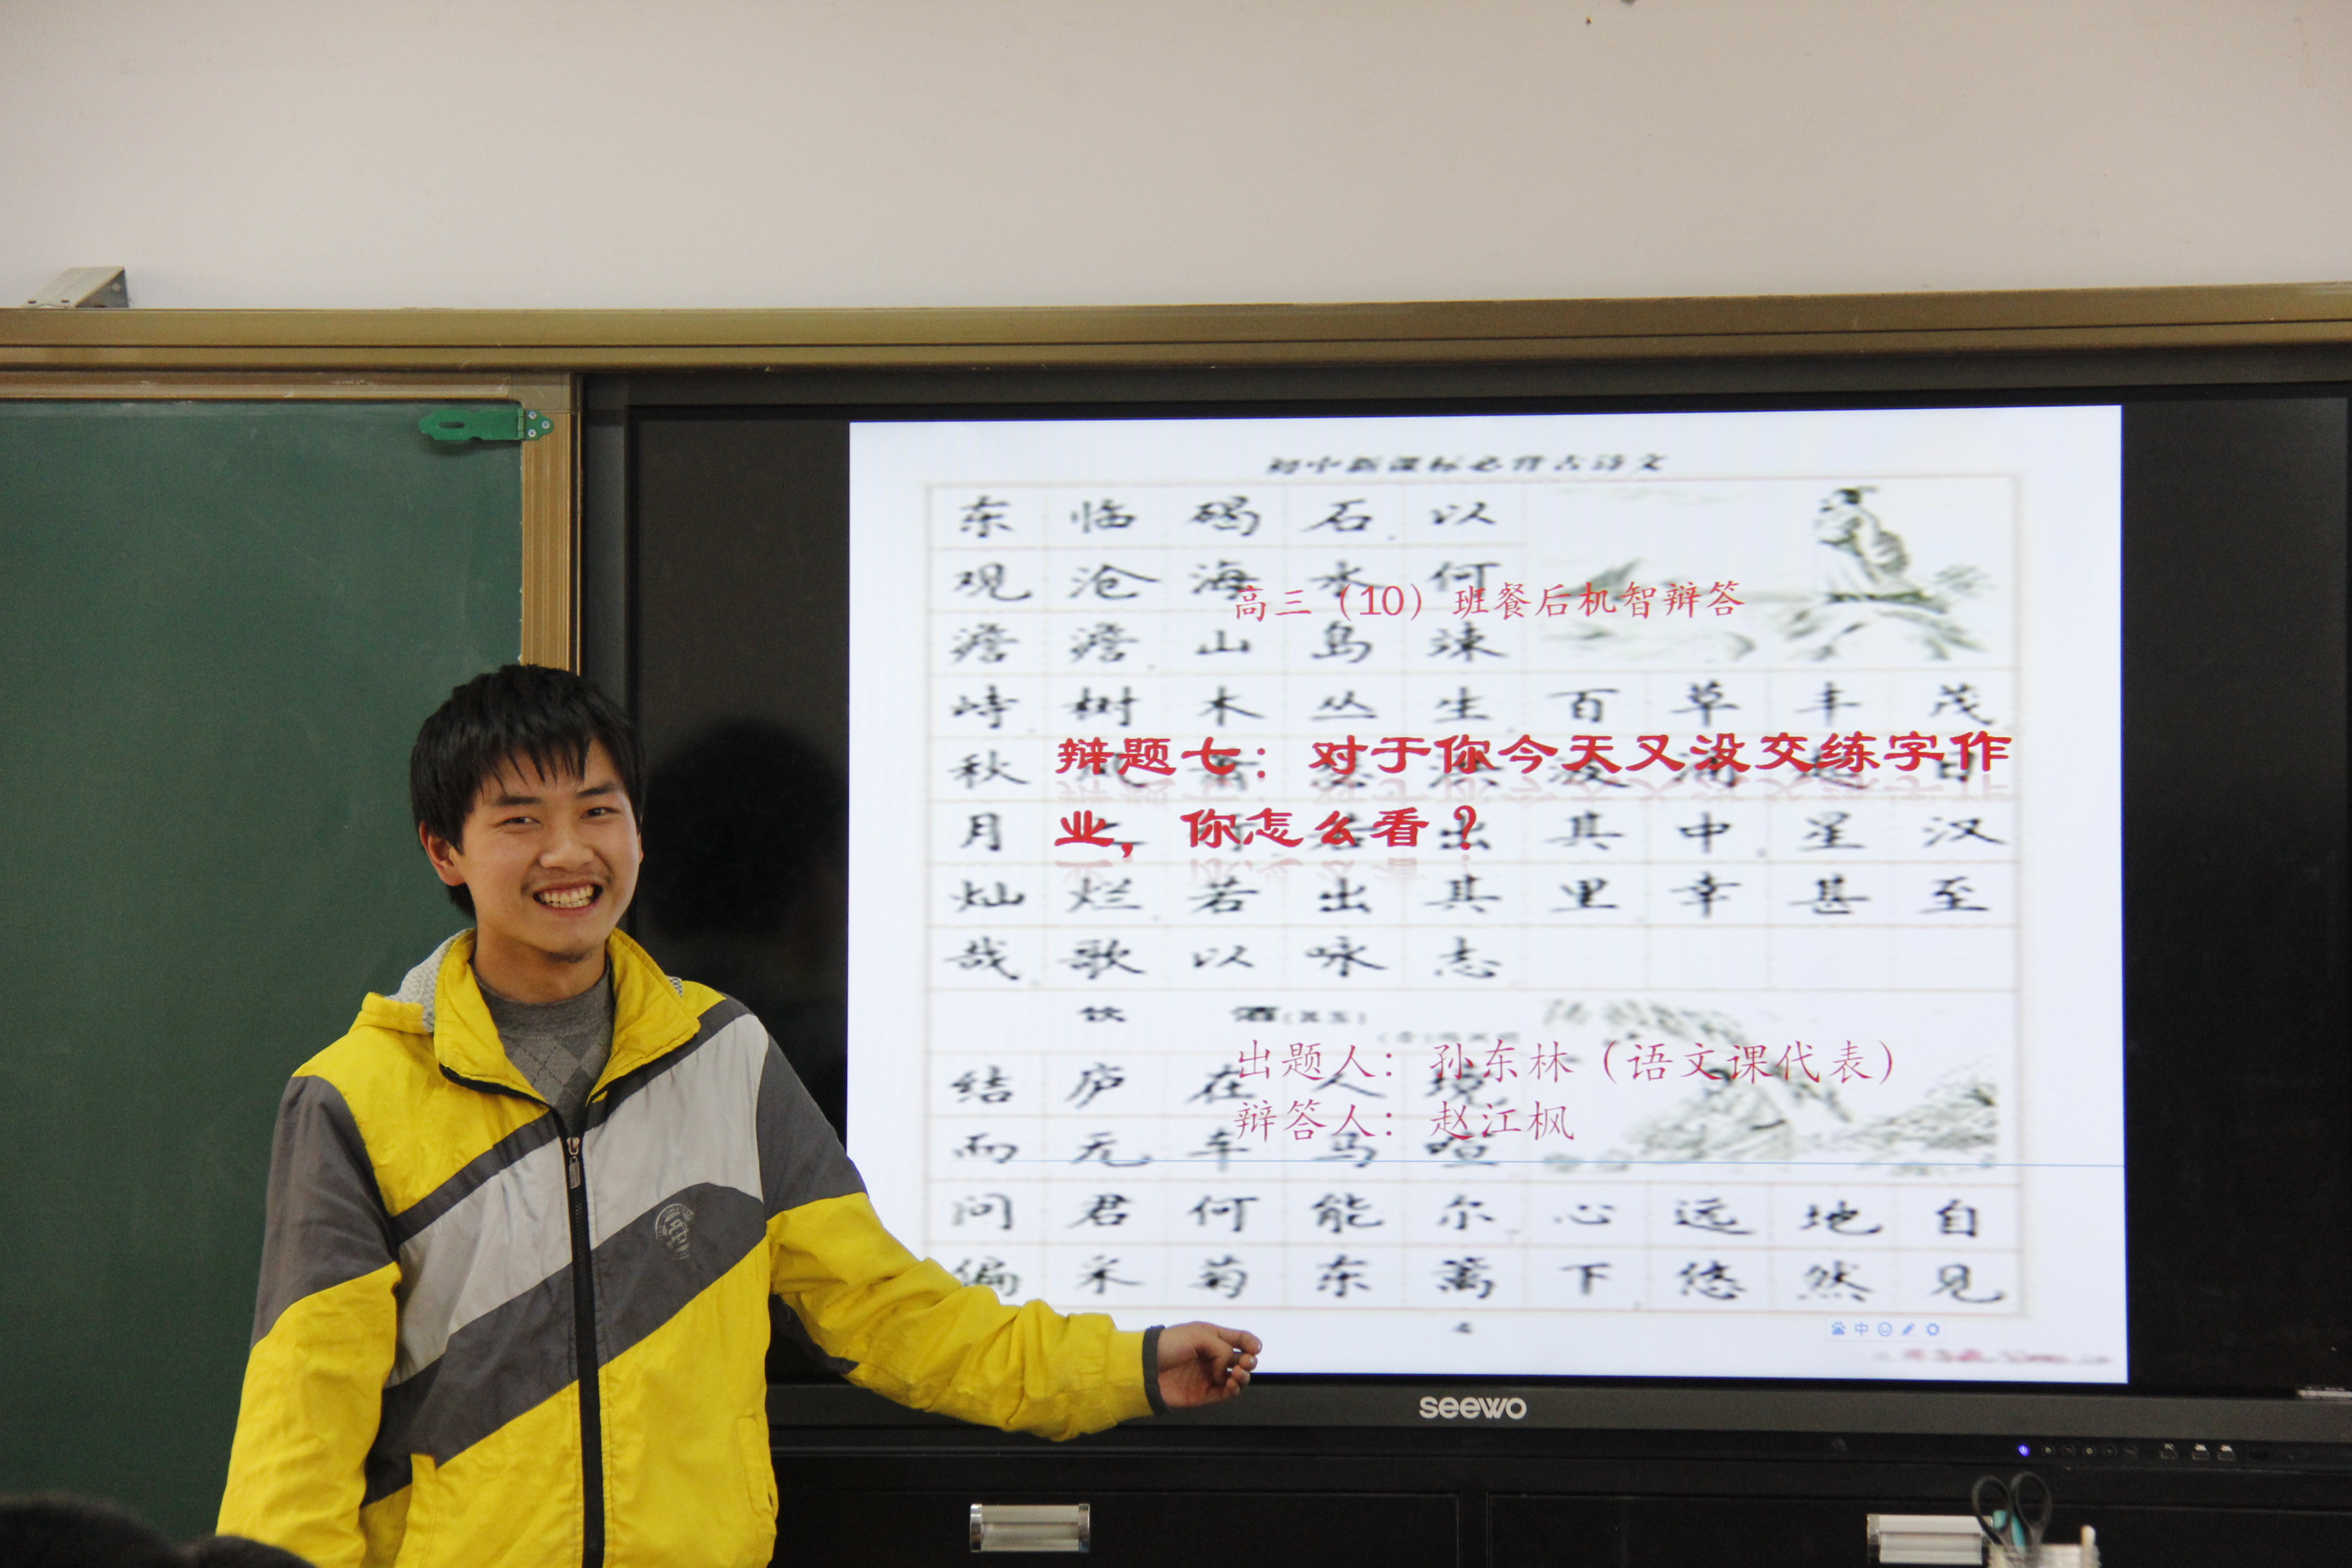 初中新课标必背古诗文
东临碣石以
观沧海水何
高三（10）班餐后机智辩答
澹澹山岛竦
峙树木丛生百草丰茂
辩题七：对于你今天又没交练字作
秋
月
业，你怎么看？
出其中星汉
灿烂若出其里幸甚至
哉歌以咏志
饮 酒（其五）
出题人：孙东林（语文课代表）
结庐在人境
辩答人：赵江枫
而无车马喧
问君何能尔心远地自
偏采菊东篱下悠然见
中
seewo